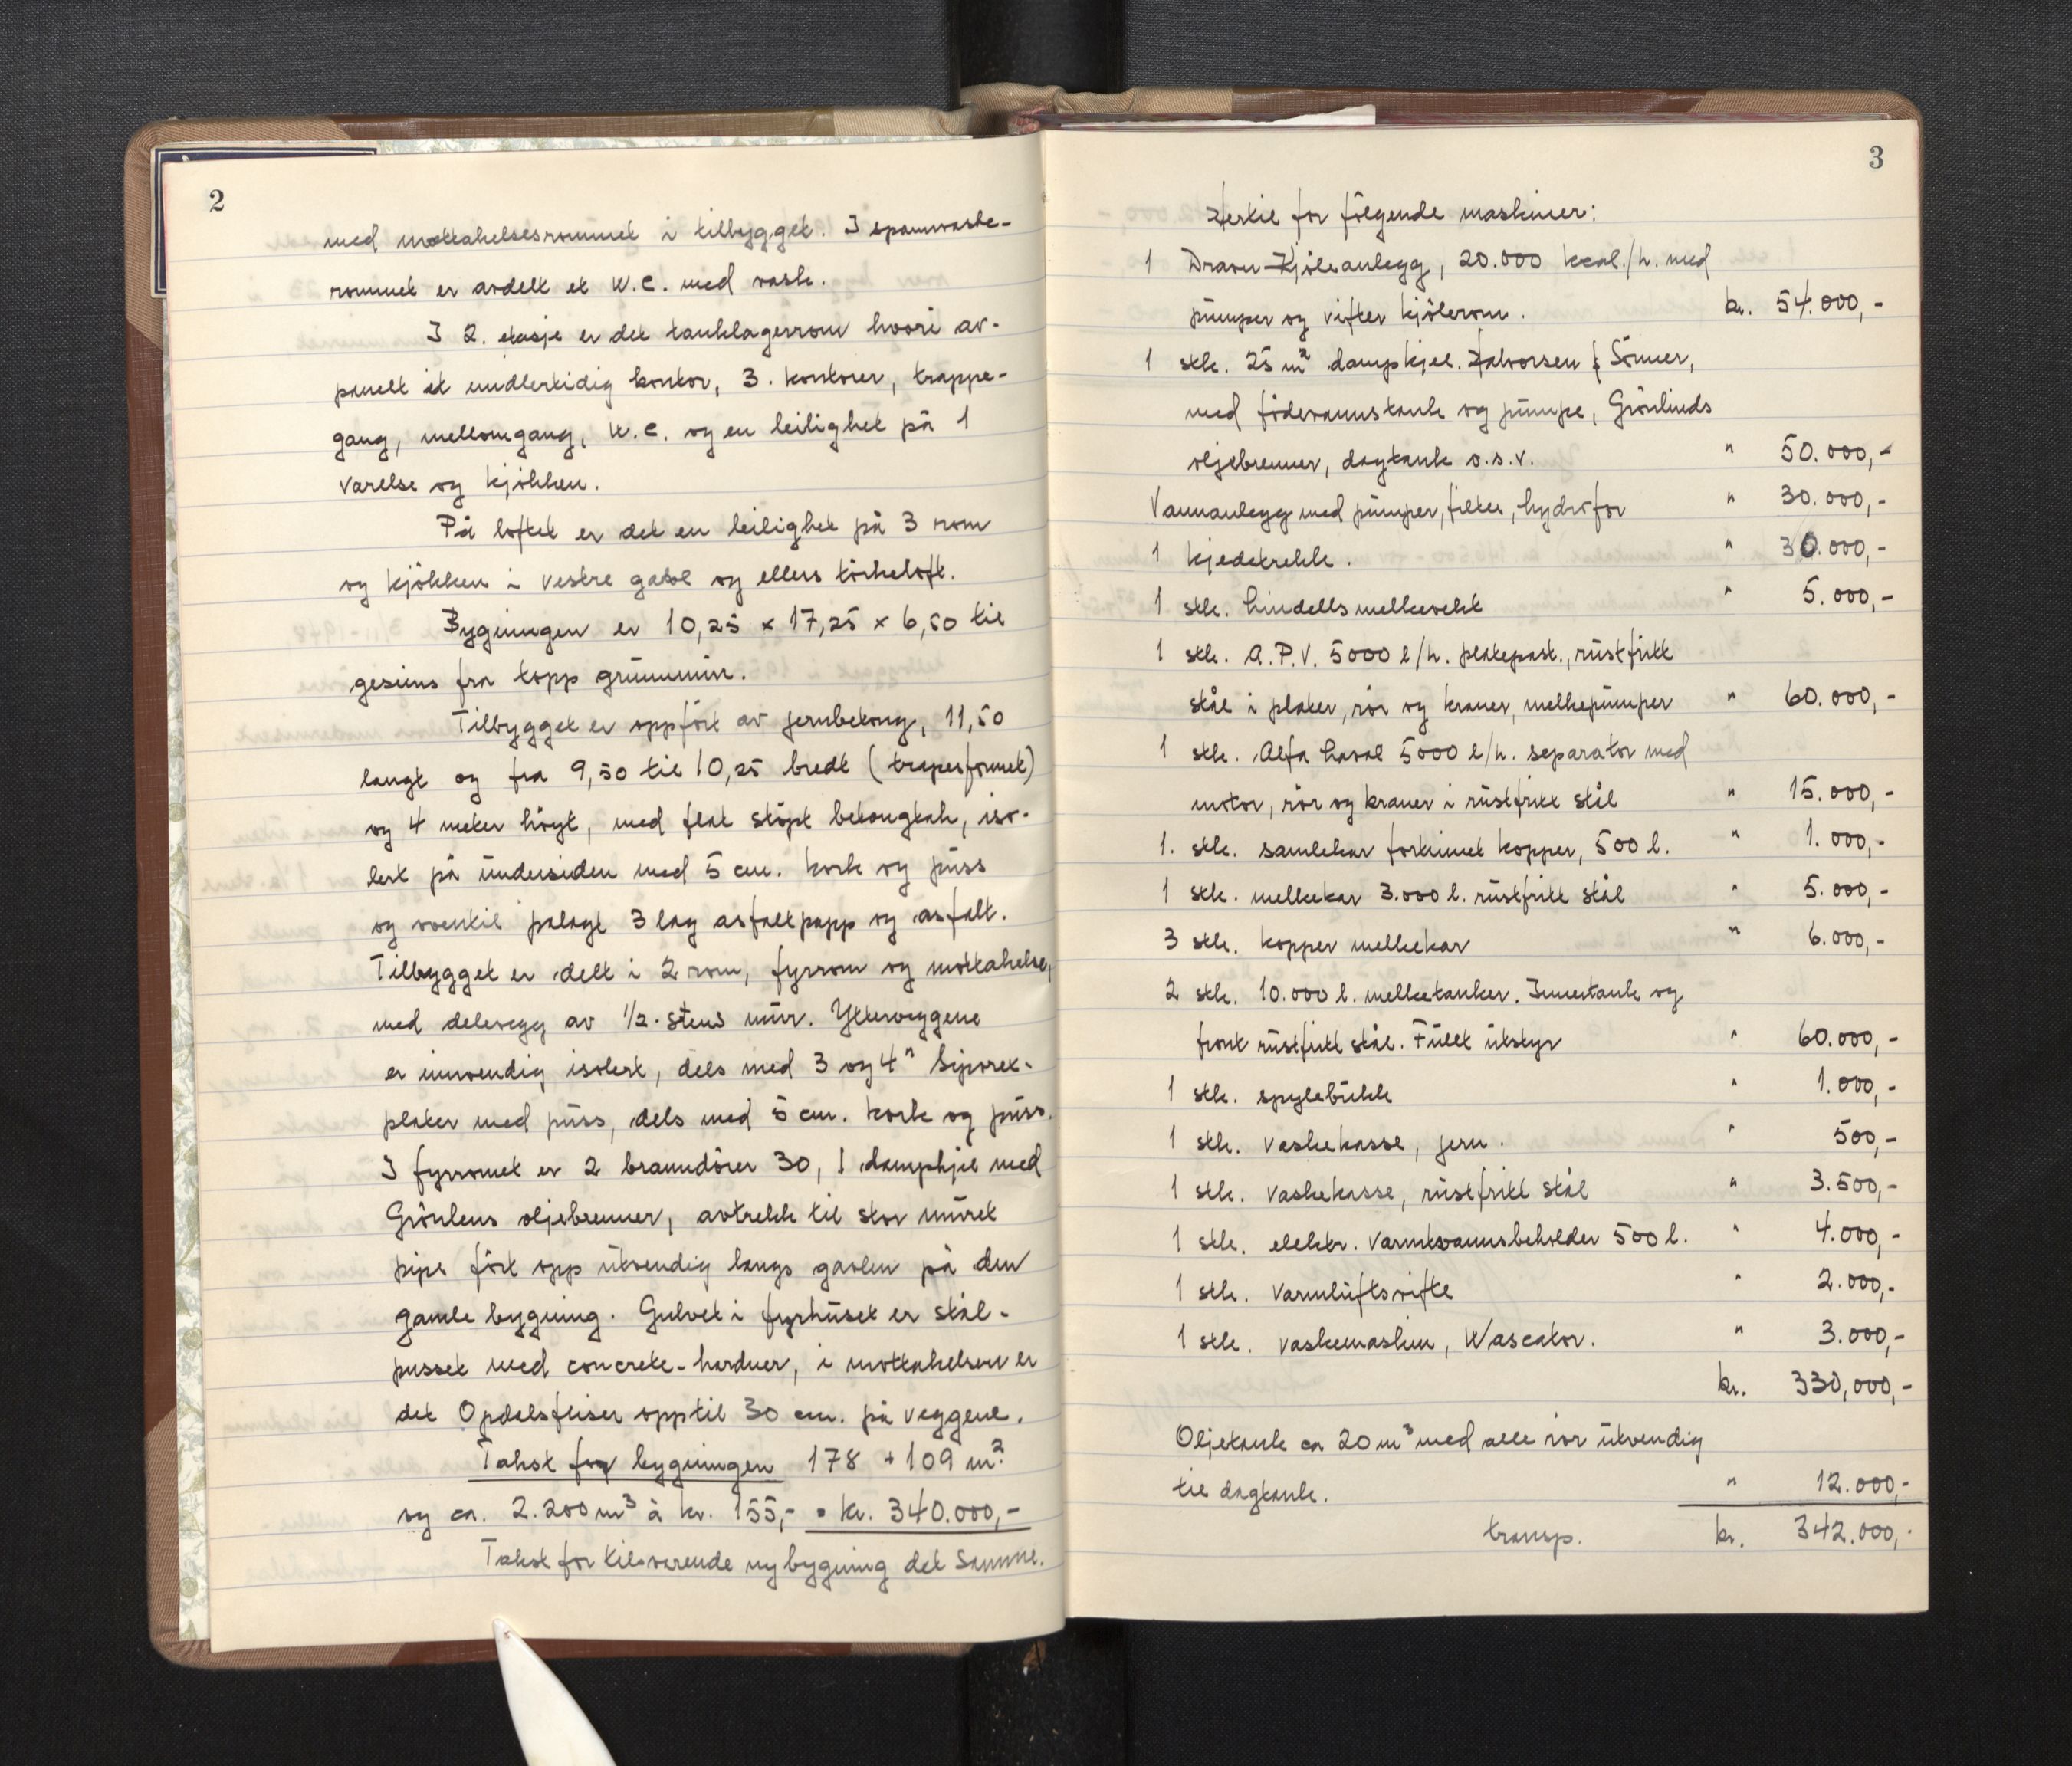 2
med mottakelsesrommet i tilbygget. I spannvaske-
rommet er avdelt et W.C. med vask.
I 2. etasje er det tanklagerrom hvori av-
panelt et midlertidig kontor, 3. kontorer, trappe-
gang, mellomgang, W.C. og en leilighet på 1
værelse og kjøkken.
På loftet er det en leilighet på 3 rom
og kjøkken i vestre gavl og ellers tørkeloft.
Bygningen er 10,25 x 17,25 x 6,50 til
gesims fra topp grunnmur.
Tilbygget er oppført av jernbetong, 11,50
langt og fra 9,50 til 10,25 bredt (trapesformet)
og 4 meter høyt, med flat støpt betongtak, iso-
lert på undersiden med 5 cm. kork og puss
og oventil pålagt 3 lag asfaltpapp og asfalt.
Tilbygget er delt i 2 rom, fyrrom og mottakelse,
med delevegg av 1/2-stens mur. Ytterveggene
er innvendig isolert, dels med 3 og 4" Siporex-
plater med puss, dels med 5 cm. kork og puss.
I fyrromet er 2 branndører 30, 1 dampkjel med
Grönlens oljebrenner, avtrekk til stor muret
pipe ført opp utvendig langs gavlen på den
gamle bygning. Gulvet i fyrhuset er stål-
pusset med concrete-hardner, i mottakelsen er
det Opdalsfliser opptil 30 cm. på veggene.
Takst for bygningen 178 + 109 m²
og ca. 2.200 m³ à kr. 155,- = kr. 340.000,-
Takst for tilsvarende nybygning det samme.
3
Hertil for følgende maskiner:
1 Kjøleanlegg, 20.000 kcal./h. med
pumper og vifter kjølerom. kr. 54.000,-
1 stk. 25 m² dampkjel. Halvorsen & Sønner,
med fødevannstank og pumpe, Grönlunds
oljebrenner, dagtank o.s.v. " 50.000,-
Vannanlegg med pumper, filter, hydrofor " 30.000,-
1 kjedetrekk. " 30.000,-
1 stk. Lindells melkevekt " 5.000,-
1 stk. A.P.V. 5000 l/h. platepast., rustfritt
stål i plater, rør og kraner, melkepumper " 60.000,-
1 stk. Alfa Laval 5000 l/h. separator med
motor, rør og kraner i rustfritt stål " 15.000,-
1. stk. samlekar fortinnet kopper, 500 l. " 1.000,-
1 stk. melkekar 3.000 l. rustfritt stål " 5.000,-
3 stk. kopper melkekar " 6.000,-
2 stk. 10.000 l. melketanker. Innertank og
front rustfritt stål. Fullt utstyr " 60.000,-
1 stk. spylebukk " 1.000,-
1 stk. vaskekasse, jern. " 500,-
1 stk. vaskekasse, rustfritt stål " 3.500,-
1 stk. elektr. varmtvannsbeholder 500 l. " 4.000,-
1 stk. varmluftsvifte " 2.000,-
1 stk. vaskemaskin, Wascator. " 3.000,-
kr. 330,000,-
Oljetank ca 20 m³ med alle rør utvendig
til dagtank. " 12.000,-
transp. kr. 342.000,-